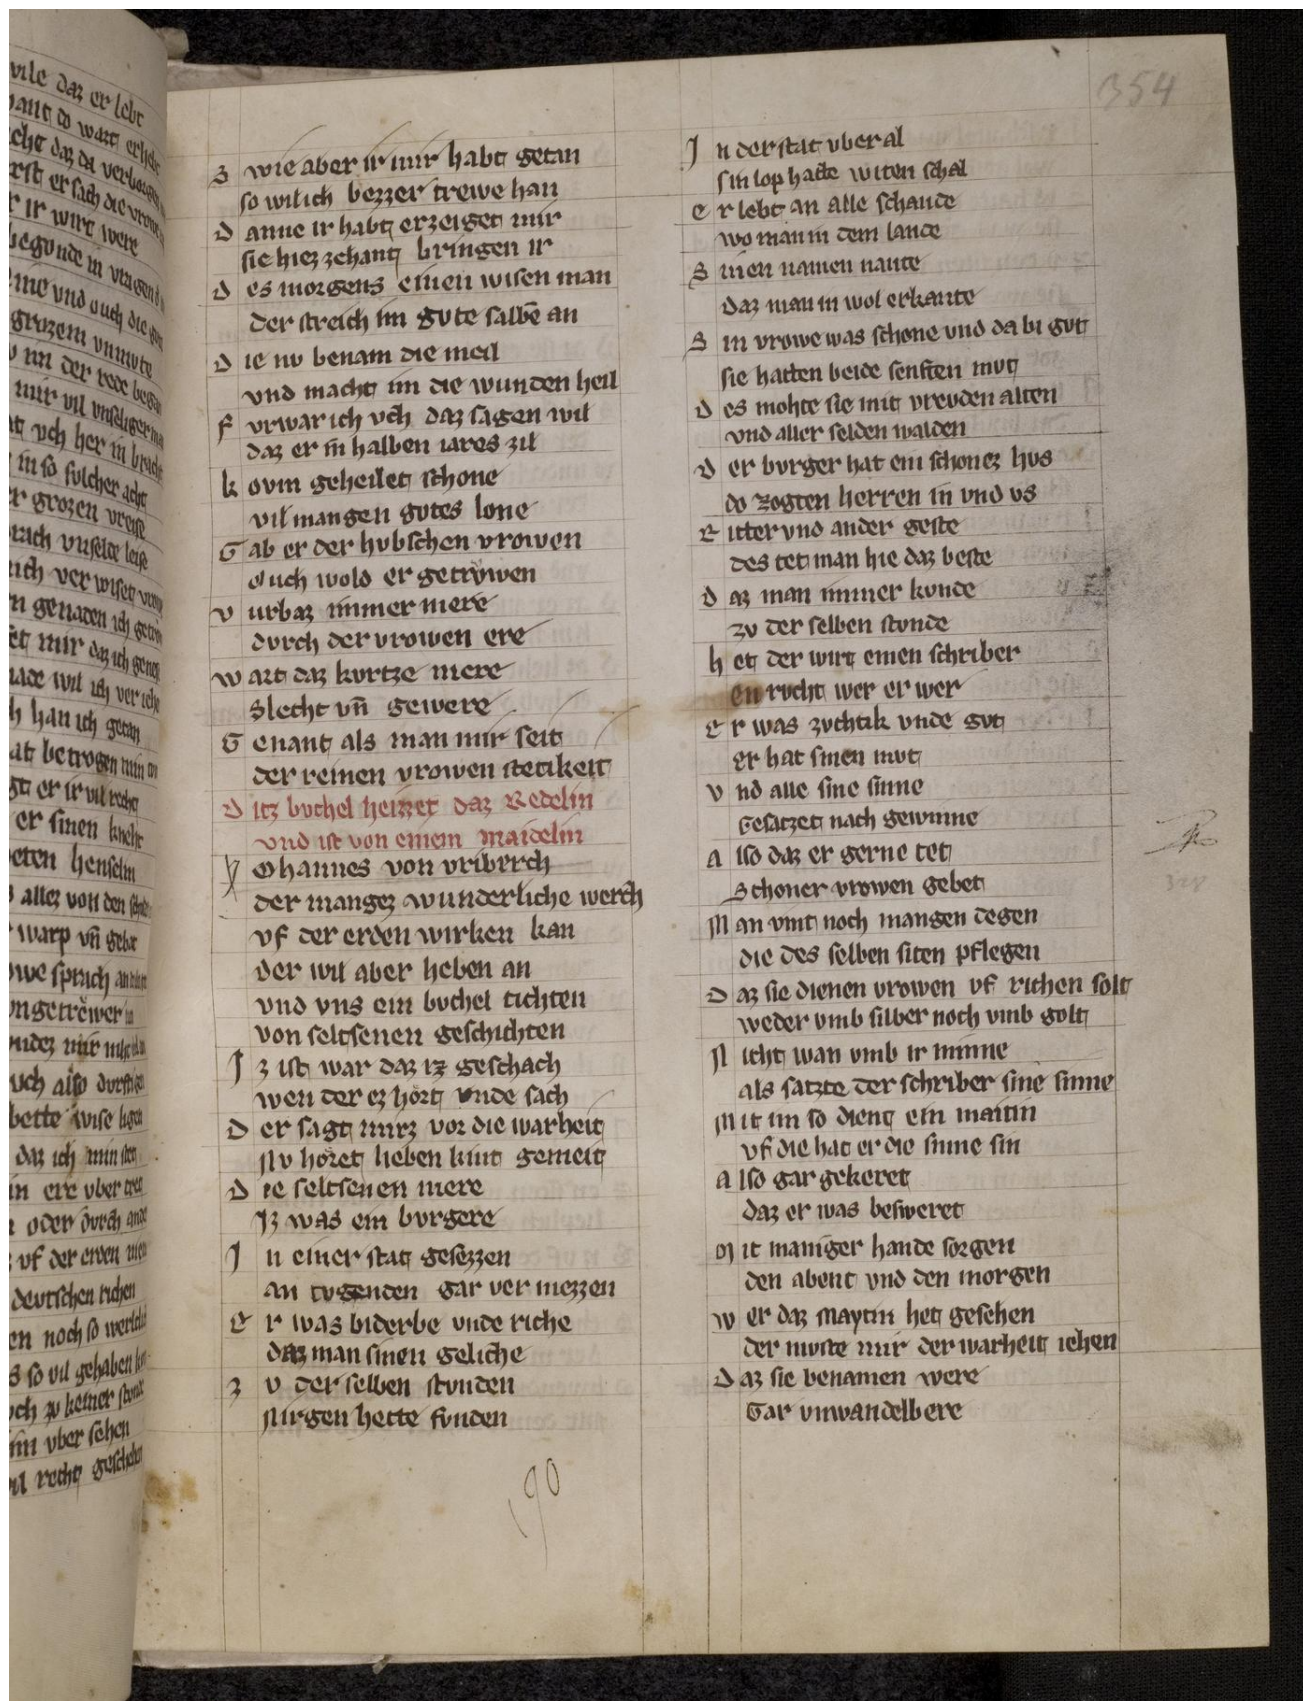 354
S wie aber ir mir habt getan
so wil ich bezzer trewe han
D anne ir habt erzeiget mir
sie hiez zehant bringen ir
D es morgens einen wisen man
der streich im gvte salbē an
D ie nv benam die meil
vnd macht im die wunden heil
F vrwar ich vch daz sagen wil
daz er in halben iares zil
k ovm geheilet schone
vil mangen gvtes lone
G ab er der hvbschen vrowen
ouch wold er getrvwen
v urbaz immer mere
dvrch der vrowen ere
w art daz kvrtze mere
slecht vn̄ gewere
G enant als man mir seit
der reinen vrowen stetikeit
D itz bvchel heizzet daz Redelin
vnd ist von einem maidelin
Y Ohannes von vriberch
der mangez wunderliche werch
vf der erden wirken kan
der wil aber heben an
vnd vns ein bvchel tichten
von seltsenen geschichten
I z ist war daz iz geschach
wen der ez hort vnde sach
D er sagt mirz vor die warheit
Nv horet lieben kint gemeit
D ie seltsenen mere
Iz was ein bvrgere
I n einer stat gesezzen
an tvgenden gar vermezzen
E r was biderbe vnde riche
daz man sinen geliche
Z v der selben stvnden
Nirgen hette fvnden
I n der stat vber al
sin lop hatte witen schal
E r lebt an alle schande
wo man in dem lande
S inen namen nante
daz man in wol erkante
S in vrowe was schone vnd da bi gvt
sie hatten beide senften mvt
D es mohte sie mit vrevden alten
vnd aller selden walden
D er bvrger hat ein schonez hvs
do zogten herren in vnd vs
R itter vnd ander geste
des tet man hie daz beste
D az man immer kvnde
zv der selben stvnde
h et der wirt einen schriber
en rvcht wer er wer
E r was zvchtik vnde gvt
er hat sinen mvt
V nd alle sine sinne
Gesatzet nach gewinne
A lso daz er gerne tet
Schoner vrowen gebet
M an vint noch mangen degen
die des selben siten pflegen
D az sie dienen vrowen vf richen solt
weder vmb silber noch vmb golt
N icht wan vmb ir minne
als satzte der schriber sine sinne
M it im so dient ein maitin
vf die hat er die sinne sin
A lso gar gekeret
daz er was besweret
M it maniger hande sorgen
den abent vnd den morgen
w er daz Maytin het gesehen
der mvste mir der warheit iehen
D az sie benamen were
Gar vnwandelbere
190